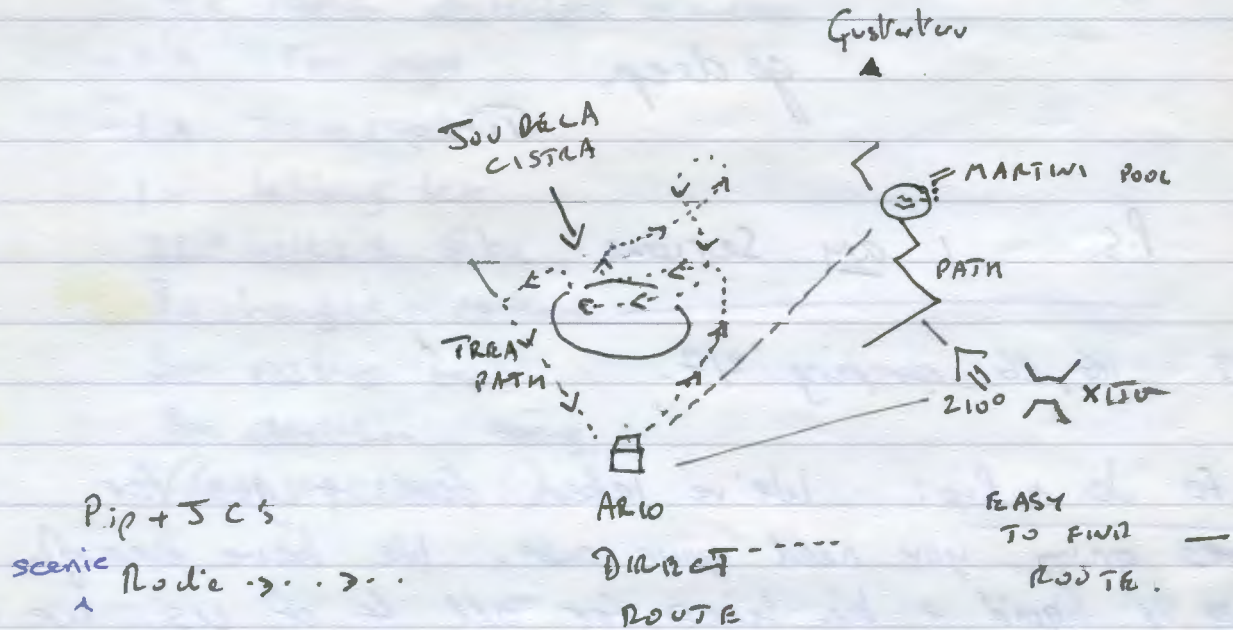 Gustuteru
JOU DE LA
CISTRA
MARTINI POOL
PATH
TREAV
PATH
210° XLIV
ARIO
Pip + JC's
scenic
Route
DIRECT
ROUTE
EASY
TO FIND
ROUTE.